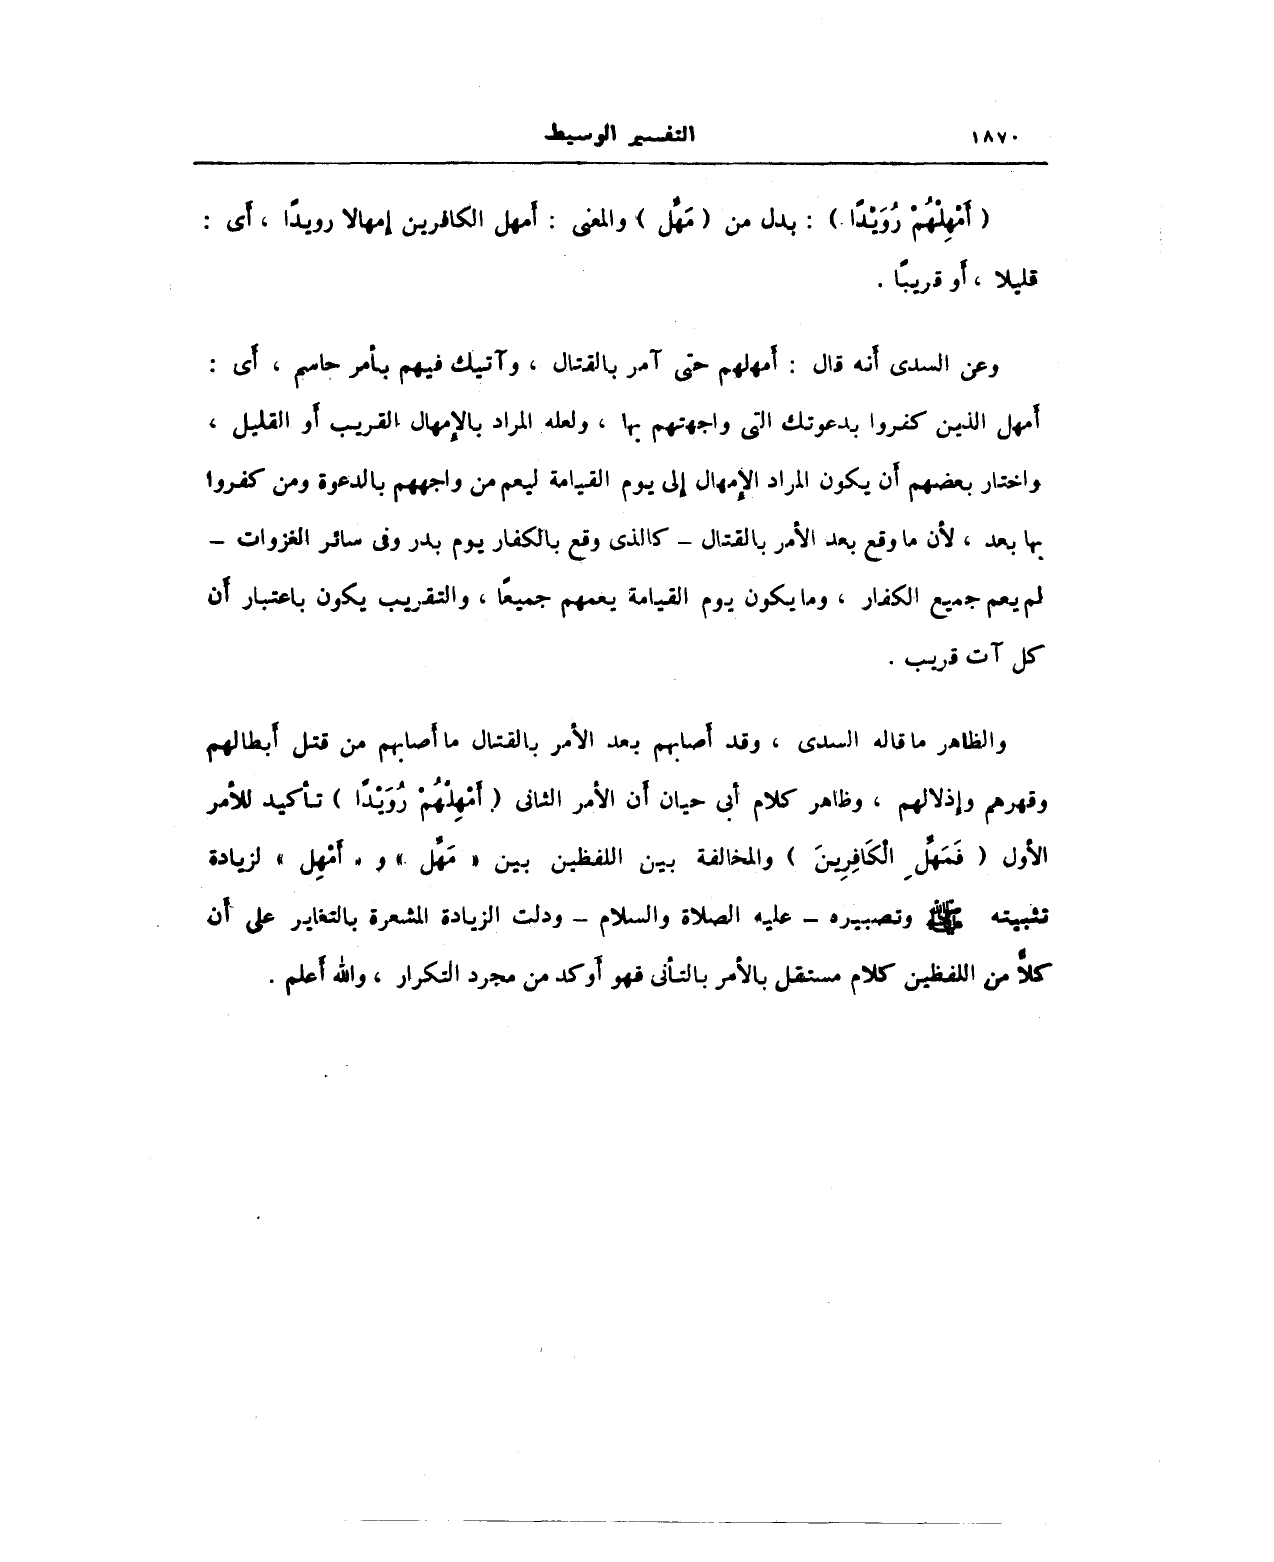 ١٨٧٠ التفسير الوسيط
( أَمْهِلْهُمْ رُوَيْدًا ) : بدل من ( مَهِّل ) والمعنى : أمهل الكافرين إمهالا رويدًا ، أى :
قليلا ، أو قريبًا .
وعن السدى أنه قال : أمهلهم حتى آمر بالقتال ، وآتيك فيهم بأمر حاسم ، أى :
أمهل الذين كفروا بدعوتك التى واجهتهم بها ، ولعله المراد بالإمهال القريب أو القليل ،
واختار بعضهم أن يكون المراد الإمهال إلى يوم القيامة ليعم من واجههم بالدعوة ومن كفروا
بها بعد ، لأن ما وقع بعد الأمر بالقتال – كالذى وقع بالكفار يوم بدر وفى سائر الغزوات –
لم يعم جميع الكفار ، وما يكون يوم القيامة يعمهم جميعًا ، والتقريب يكون باعتبار أن
كل آت قريب .
والظاهر ما قاله السدى ، وقد أصابهم بعد الأمر بالقتال ما أصابهم من قتل أبطالهم
وقهرهم وإذلالهم ، وظاهر كلام أبى حيان أن الأمر الثانى ( أَمْهِلْهُمْ رُوَيْدًا ) تأكيد للأمر
الأول ( فَمَهِّلِ الْكَافِرِينَ ) والمخالفة بين اللفظين بين « مَهِّل » و « أَمْهِل » لزيادة
تثبيته ﷺ وتصبيره – عليه الصلاة والسلام – ودلت الزيادة المشعرة بالتغاير على أن
كلاًّ من اللفظين كلام مستقل بالأمر بالتأنى فهو أوكد من مجرد التكرار ، والله أعلم .